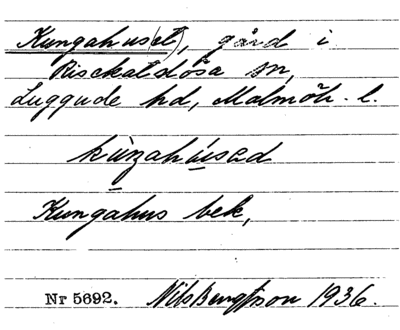 Kungahus(et), gård i
Risekatslösa sn,
Luggude hd, Malmöh. l.
Kungahus bek,
Nr 5692. Nils Bengtsson 1936.